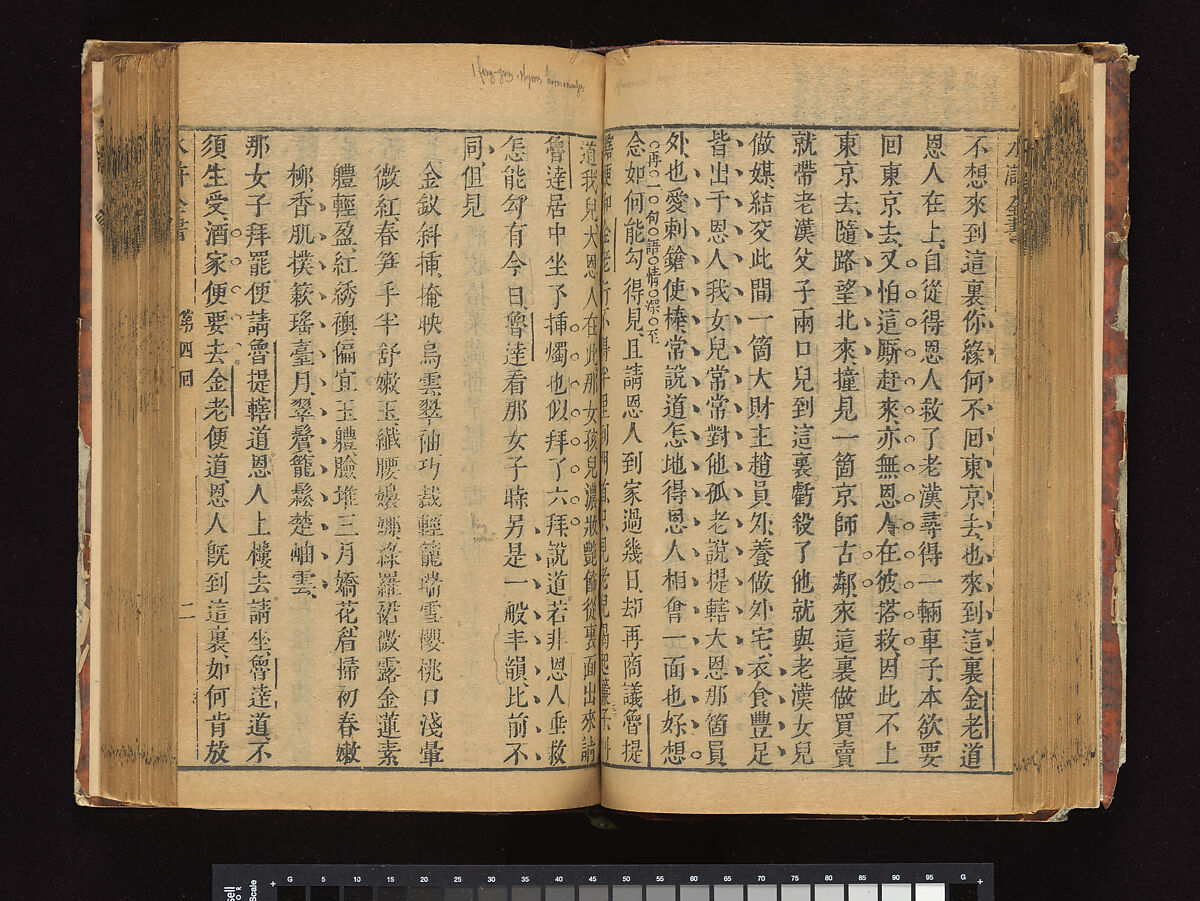 水滸全書
不想來到這裏你緣何不回東京去也來到這裏金老道
恩人在上自從得恩人救了老漢尋得一輛車子本欲要
回東京去又怕這厮赶來亦無恩人在彼搭救因此不上
東京去隨路望北來撞見一箇京師古鄰來這裏做買賣
就帶老漢父子兩口兒到這裏虧殺了他就與老漢女兒
做媒結交此間一箇大財主趙員外養做外宅衣食豐足
皆出于恩人我女兒常常對他孤老說提轄大恩那箇員
外也愛刺鎗使棒常說道怎地得恩人相會一面也好想
再一句語情深至
念如何能勾得見且請恩人到家過幾日却再商議魯提
轄便和金老行不得半里到門首只見老兒揭起簾子叫
道我兒大恩人在此那女孩兒濃妝艷飾從裏面出來請
魯達居中坐了插燭也似拜了六拜說道若非恩人垂救
怎能勾有今日魯達看那女子時另是一般丰韻比前不
同但見
金釵斜插掩映烏雲翠袖巧裁輕籠瑞雪櫻桃口淺暈
微紅春笋手半舒嫩玉纖腰嬝娜綠羅裙微露金蓮素
體輕盈紅綉襖偏宜玉體臉堆三月嬌花眉掃初春嫩
柳香肌撲簌瑤臺月翠鬢籠鬆楚岫雲
那女子拜罷便請魯提轄道恩人上樓去請坐魯達道不
須生受洒家便要去金老便道恩人旣到這裏如何肯放
水滸全書 第四回 二
G 5 10 15 20 25 30 35 40 45 50 55 60 65 70 75 80 85 90 95 G